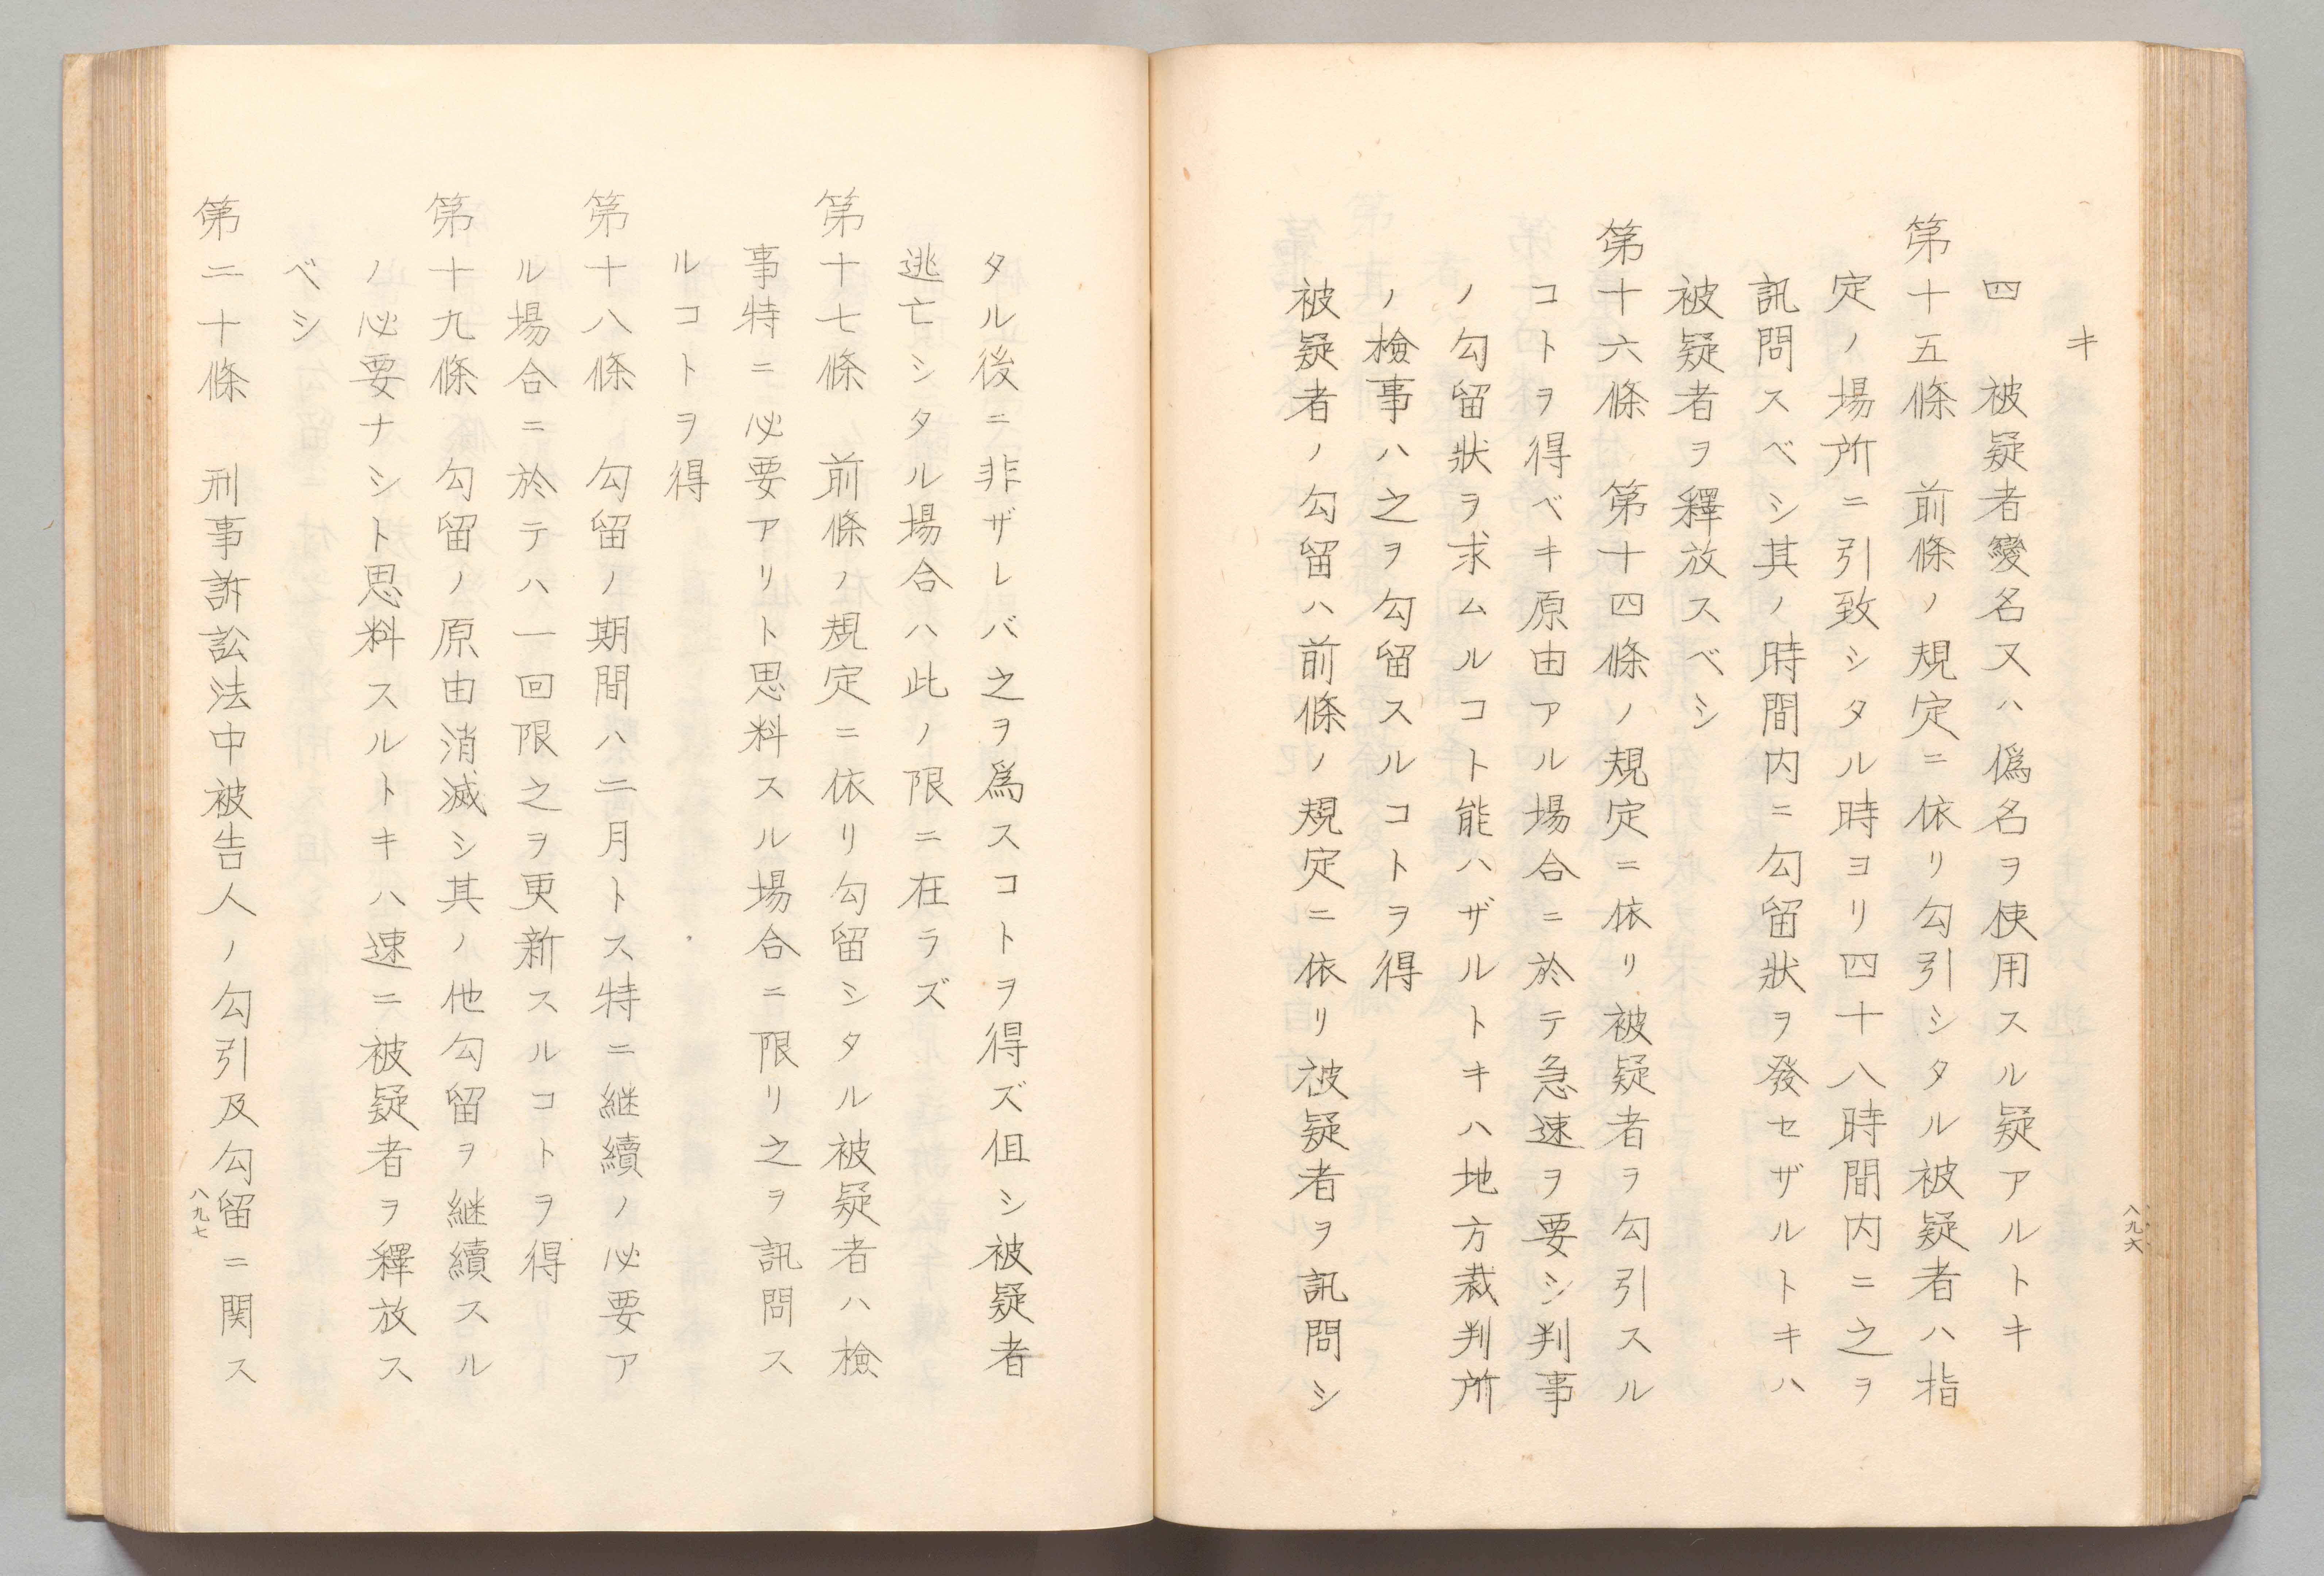 キ
四　被疑者變名又ハ僞名ヲ使用スル疑アルトキ
第十五條　前條ノ規定ニ依リ勾引シタル被疑者ハ指
定ノ場所ニ引致シタル時ヨリ四十八時間内ニ之ヲ
訊問スベシ其ノ時間内ニ勾留狀ヲ發セザルトキハ
被疑者ヲ釋放スベシ
第十六條　第十四條ノ規定ニ依リ被疑者ヲ勾引スル
コトヲ得ベキ原由アル場合ニ於テ急速ヲ要シ判事
ノ勾留狀ヲ求ムルコト能ハザルトキハ地方裁判所
ノ檢事ハ之ヲ勾留スルコトヲ得
被疑者ノ勾留ハ前條ノ規定ニ依リ被疑者ヲ訊問シ
八九六
タル後ニ非ザレバ之ヲ爲スコトヲ得ズ伹シ被疑者
逃亡シタル場合ハ此ノ限ニ在ラズ
第十七條　前條ノ規定ニ依リ勾留シタル被疑者ハ檢
事特ニ必要アリト思料スル場合ニ限リ之ヲ訊問ス
ルコトヲ得
第十八條　勾留ノ期間ハ二月トス特ニ継續ノ必要ア
ル場合ニ於テハ一回限之ヲ更新スルコトヲ得
第十九條　勾留ノ原由消滅シ其ノ他勾留ヲ継續スル
ノ必要ナシト思料スルトキハ速ニ被疑者ヲ釋放ス
ベシ
第二十條　刑事訴訟法中被告人ノ勾引及勾留ニ関ス
八九七